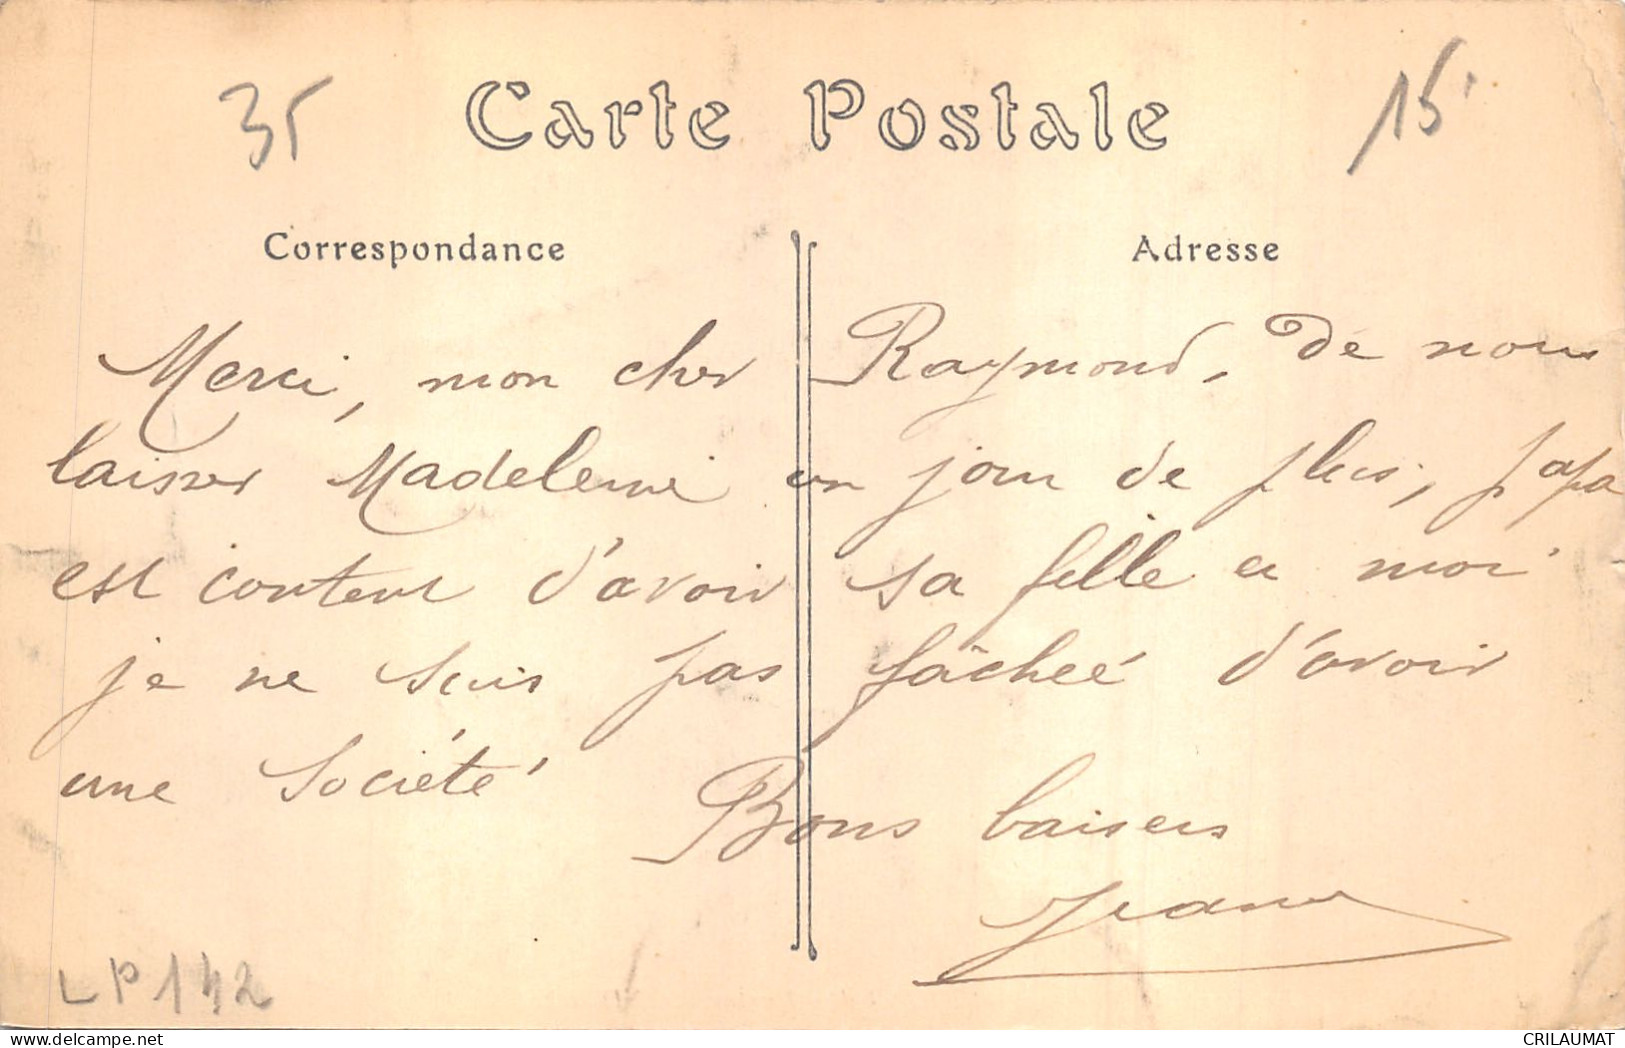 35 Carte Postale 15
Correspondance Adresse
Merci, mon cher Raymond, de nous
laisser Madeleine un jour de plus, papa
est content d'avoir sa fille et moi
je ne suis pas fâcheé d'avoir
une société
Bons baisers
Jeanne
LP142
www.delcampe.net CRILAUMAT